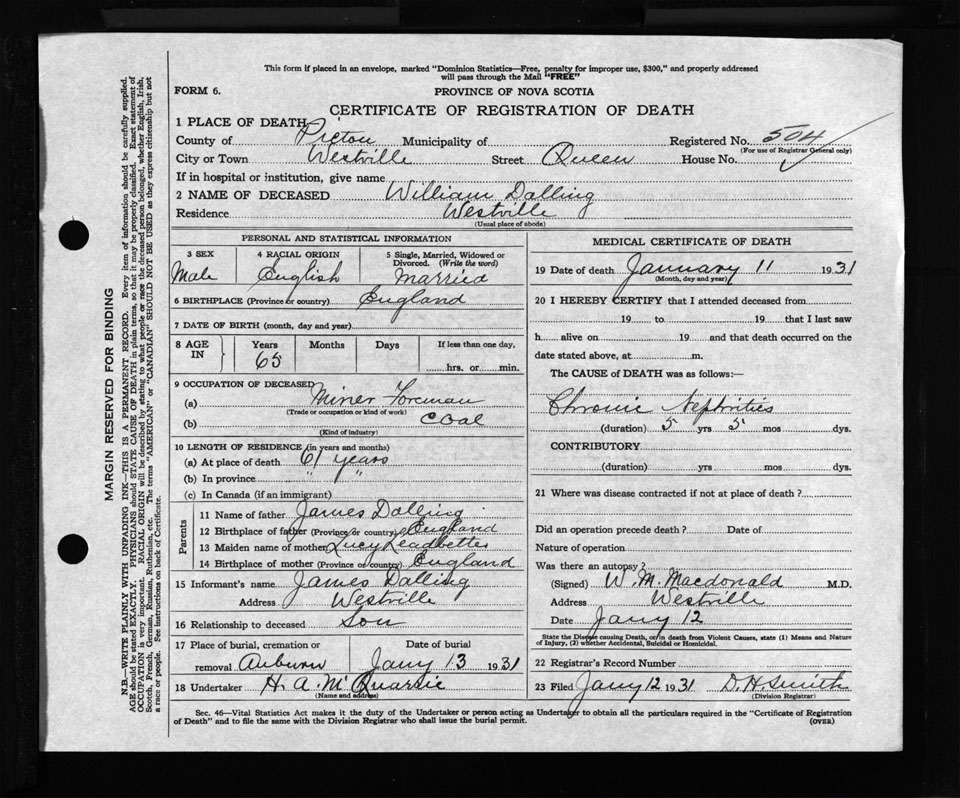 This form if placed in an envelope, marked "Dominion Statistics—Free, penalty for improper use, $300," and properly addressed
will pass through the Mail "FREE"
FORM 6.
PROVINCE OF NOVA SCOTIA
CERTIFICATE OF REGISTRATION OF DEATH
1 PLACE OF DEATH
County of Pictou Municipality of Registered No. 504
(For use of Registrar General only)
City or Town Westville Street Queen House No.
If in hospital or institution, give name
2 NAME OF DECEASED William Dalling
Residence Westville
(Usual place of abode)
PERSONAL AND STATISTICAL INFORMATION
3 SEX
Male
4 RACIAL ORIGIN
English
5 Single, Married, Widowed or
Divorced. (Write the word)
Married
6 BIRTHPLACE (Province or country) England
7 DATE OF BIRTH (month, day and year)
8 AGE IN
Years Months Days If less than one day,
65 hrs. or min.
9 OCCUPATION OF DECEASED
(a) Miner Foreman
(Trade or occupation or kind of work)
(b) Coal
(Kind of industry)
10 LENGTH OF RESIDENCE (in years and months)
(a) At place of death 61 years
(b) In province
(c) In Canada (if an immigrant)
Parents
11 Name of father James Dalling
12 Birthplace of father (Province or country) England
13 Maiden name of mother Lucy Leadbetter
14 Birthplace of mother (Province or country) England
15 Informant's name James Dalling
Address Westville
16 Relationship to deceased Son
17 Place of burial, cremation or
removal Auburn
Date of burial
Jany 13 1931
18 Undertaker H. A. McQuarrie
(Name and address)
MEDICAL CERTIFICATE OF DEATH
19 Date of death January 11 1931
(Month, day and year)
20 I HEREBY CERTIFY that I attended deceased from
19 to 19 that I last saw
h alive on 19 and that death occurred on the
date stated above, at m.
The CAUSE of DEATH was as follows:—
Chronic Nephritis
(duration) 5 yrs 5 mos dys.
CONTRIBUTORY
(duration) yrs mos dys.
21 Where was disease contracted if not at place of death?
Did an operation precede death? Date of
Nature of operation
Was there an autopsy?
(Signed) W. M. Macdonald M.D.
Address Westville
Date Jany 12
State the Disease causing Death, or in death from Violent Causes, state (1) Means and Nature
of Injury, (2) whether Accidental, Suicidal or Homicidal.
22 Registrar's Record Number
23 Filed Jany 12 1931 D. H. Smith
(Division Registrar)
Sec. 46—Vital Statistics Act makes it the duty of the Undertaker or person acting as Undertaker to obtain all the particulars required in the "Certificate of Registration
of Death" and to file the same with the Division Registrar who shall issue the burial permit.
(OVER)
MARGIN RESERVED FOR BINDING
N.B.—WRITE PLAINLY WITH UNFADING INK—THIS IS A PERMANENT RECORD. Every item of information should be carefully supplied.
AGE should be stated EXACTLY. PHYSICIANS should STATE CAUSE OF DEATH in plain terms, so that it may be properly classified. Exact statement of
OCCUPATION is very important. RACIAL ORIGIN will be described by stating to what people or race the deceased person belonged, whether English, Irish,
Scotch, French, German, Russian, Ruthenian, etc. The terms "AMERICAN" or "CANADIAN" SHOULD NOT BE USED as they express citizenship but not
a race or people. See instructions on back of Certificate.